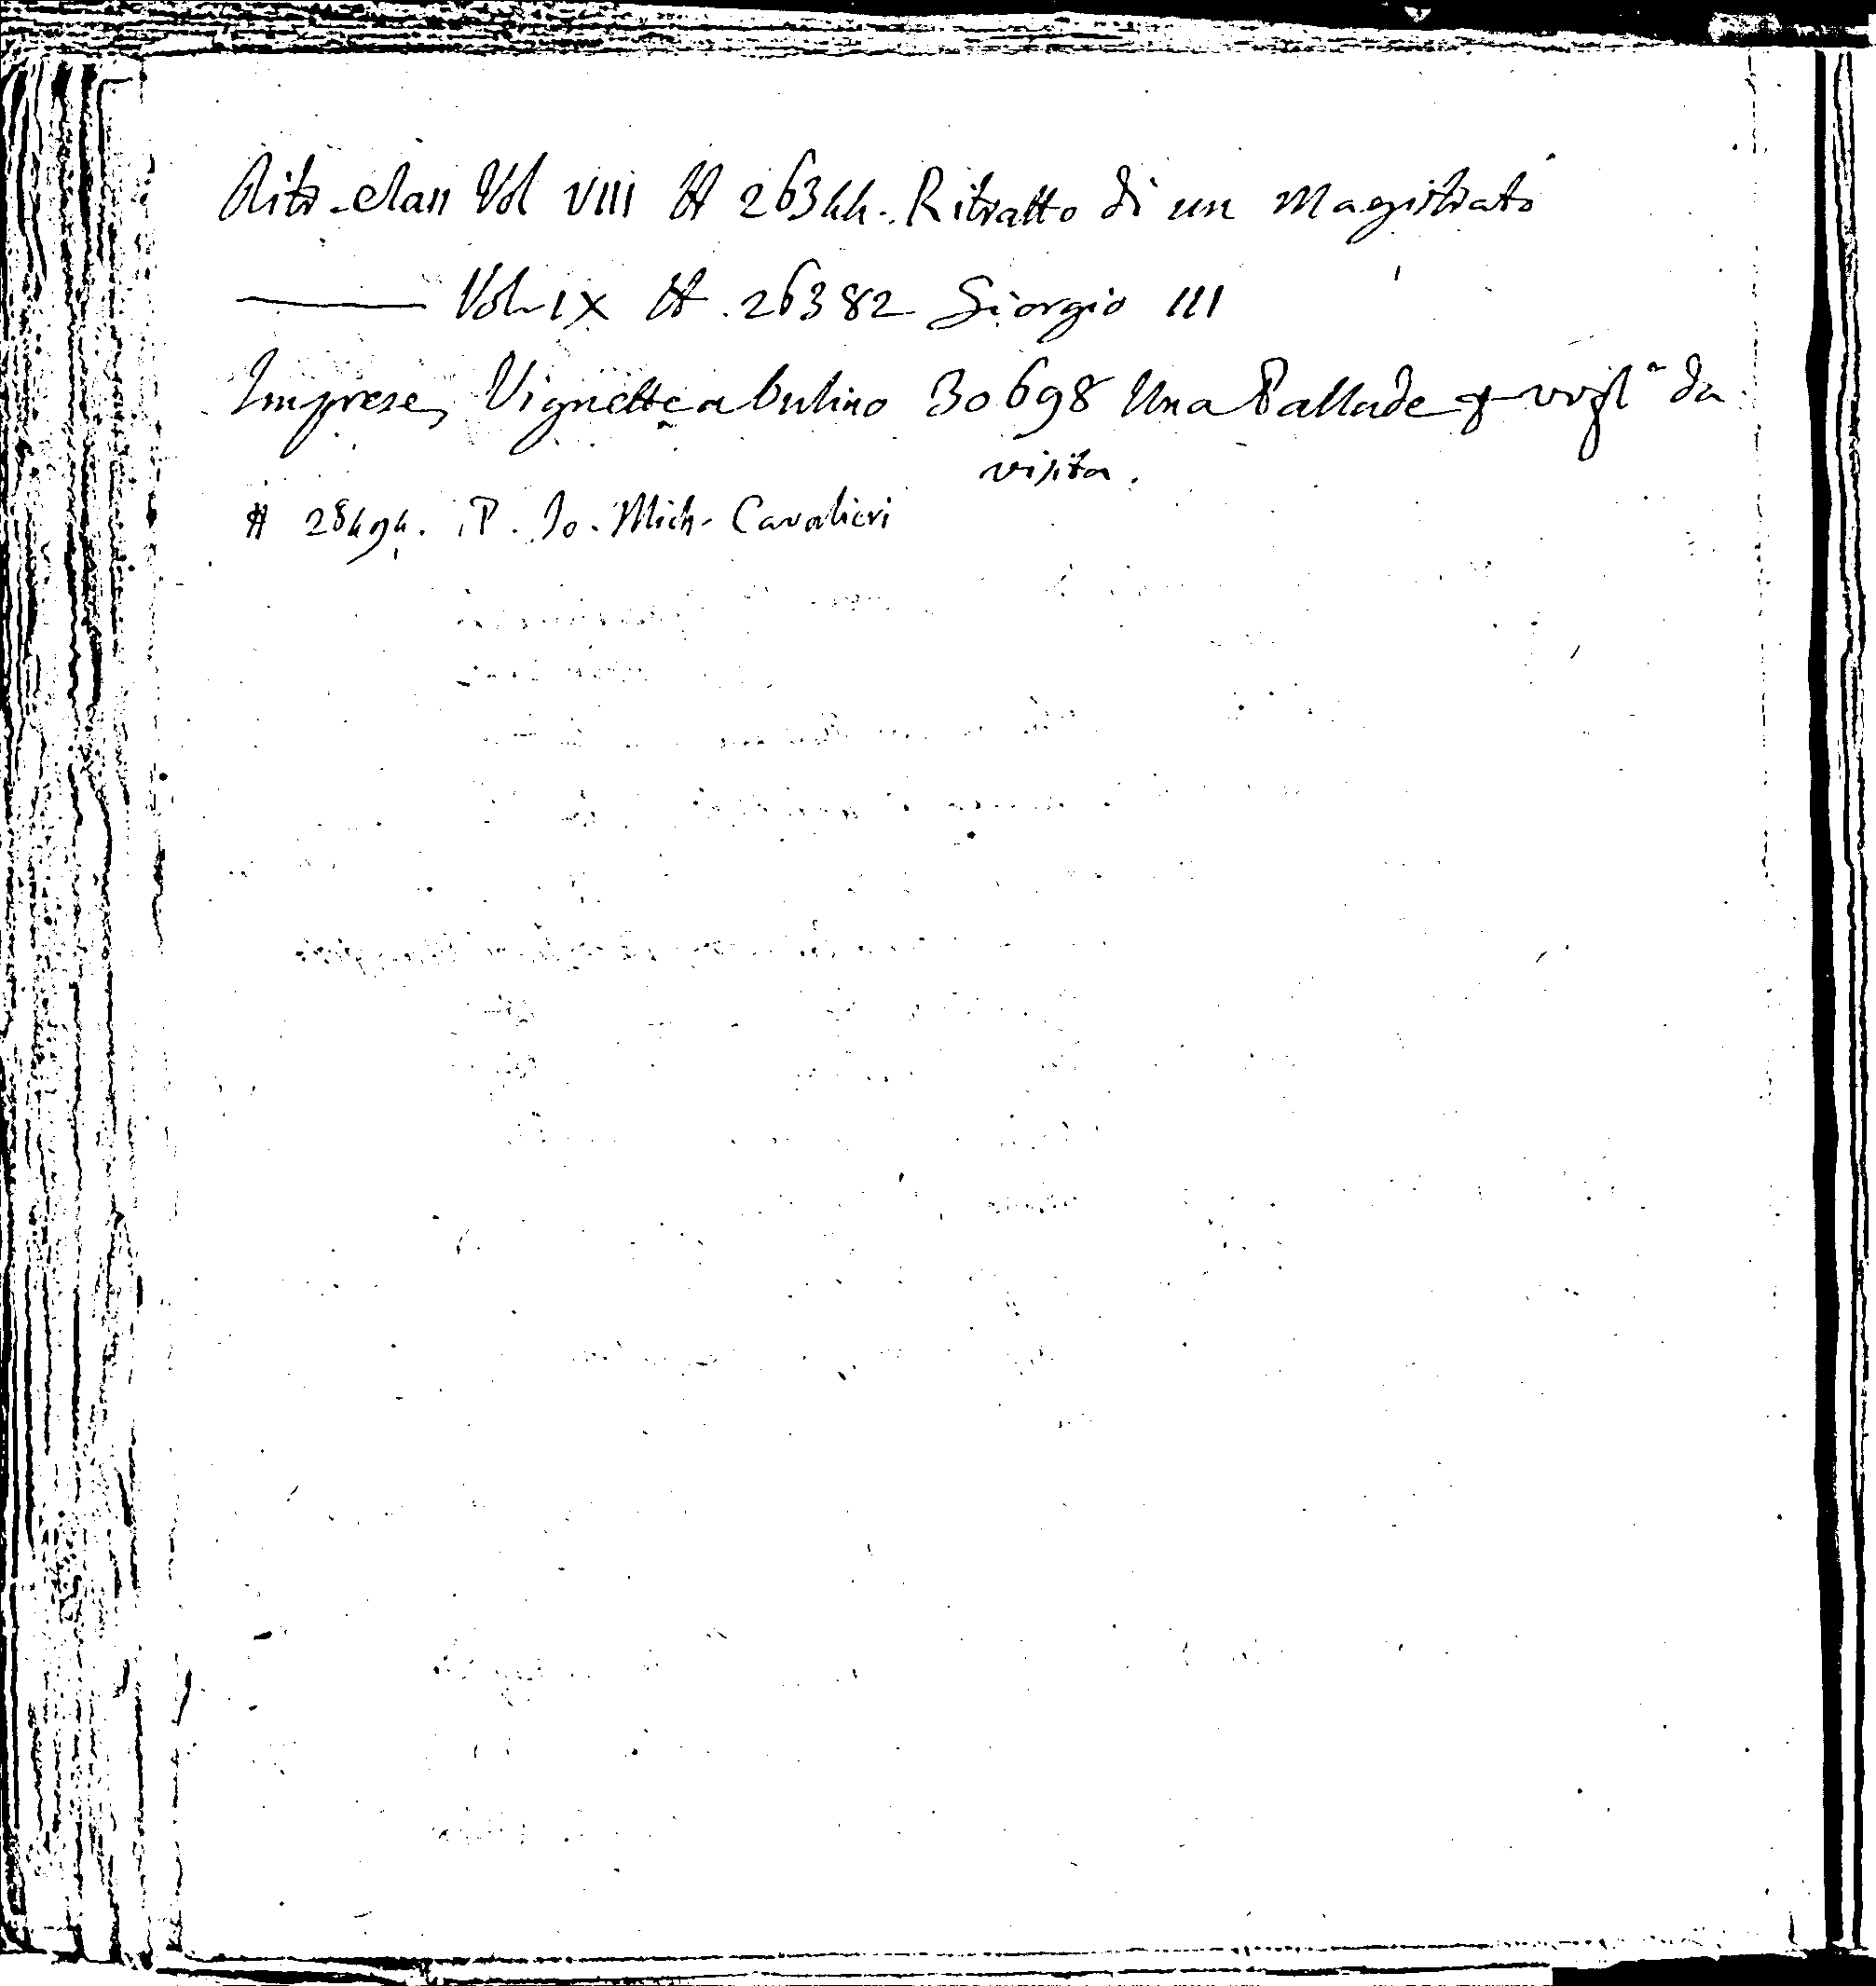 Ritr. class Vol VIII # 26344. Ritratto di un Magistrato
——— Vol. IX # . 26382 Giorgio III
Imprese, Vignette a bulino 30698 Una Pallade p vigl.a da
visita.
# 28494. P. Jo. Mich. Cavalieri